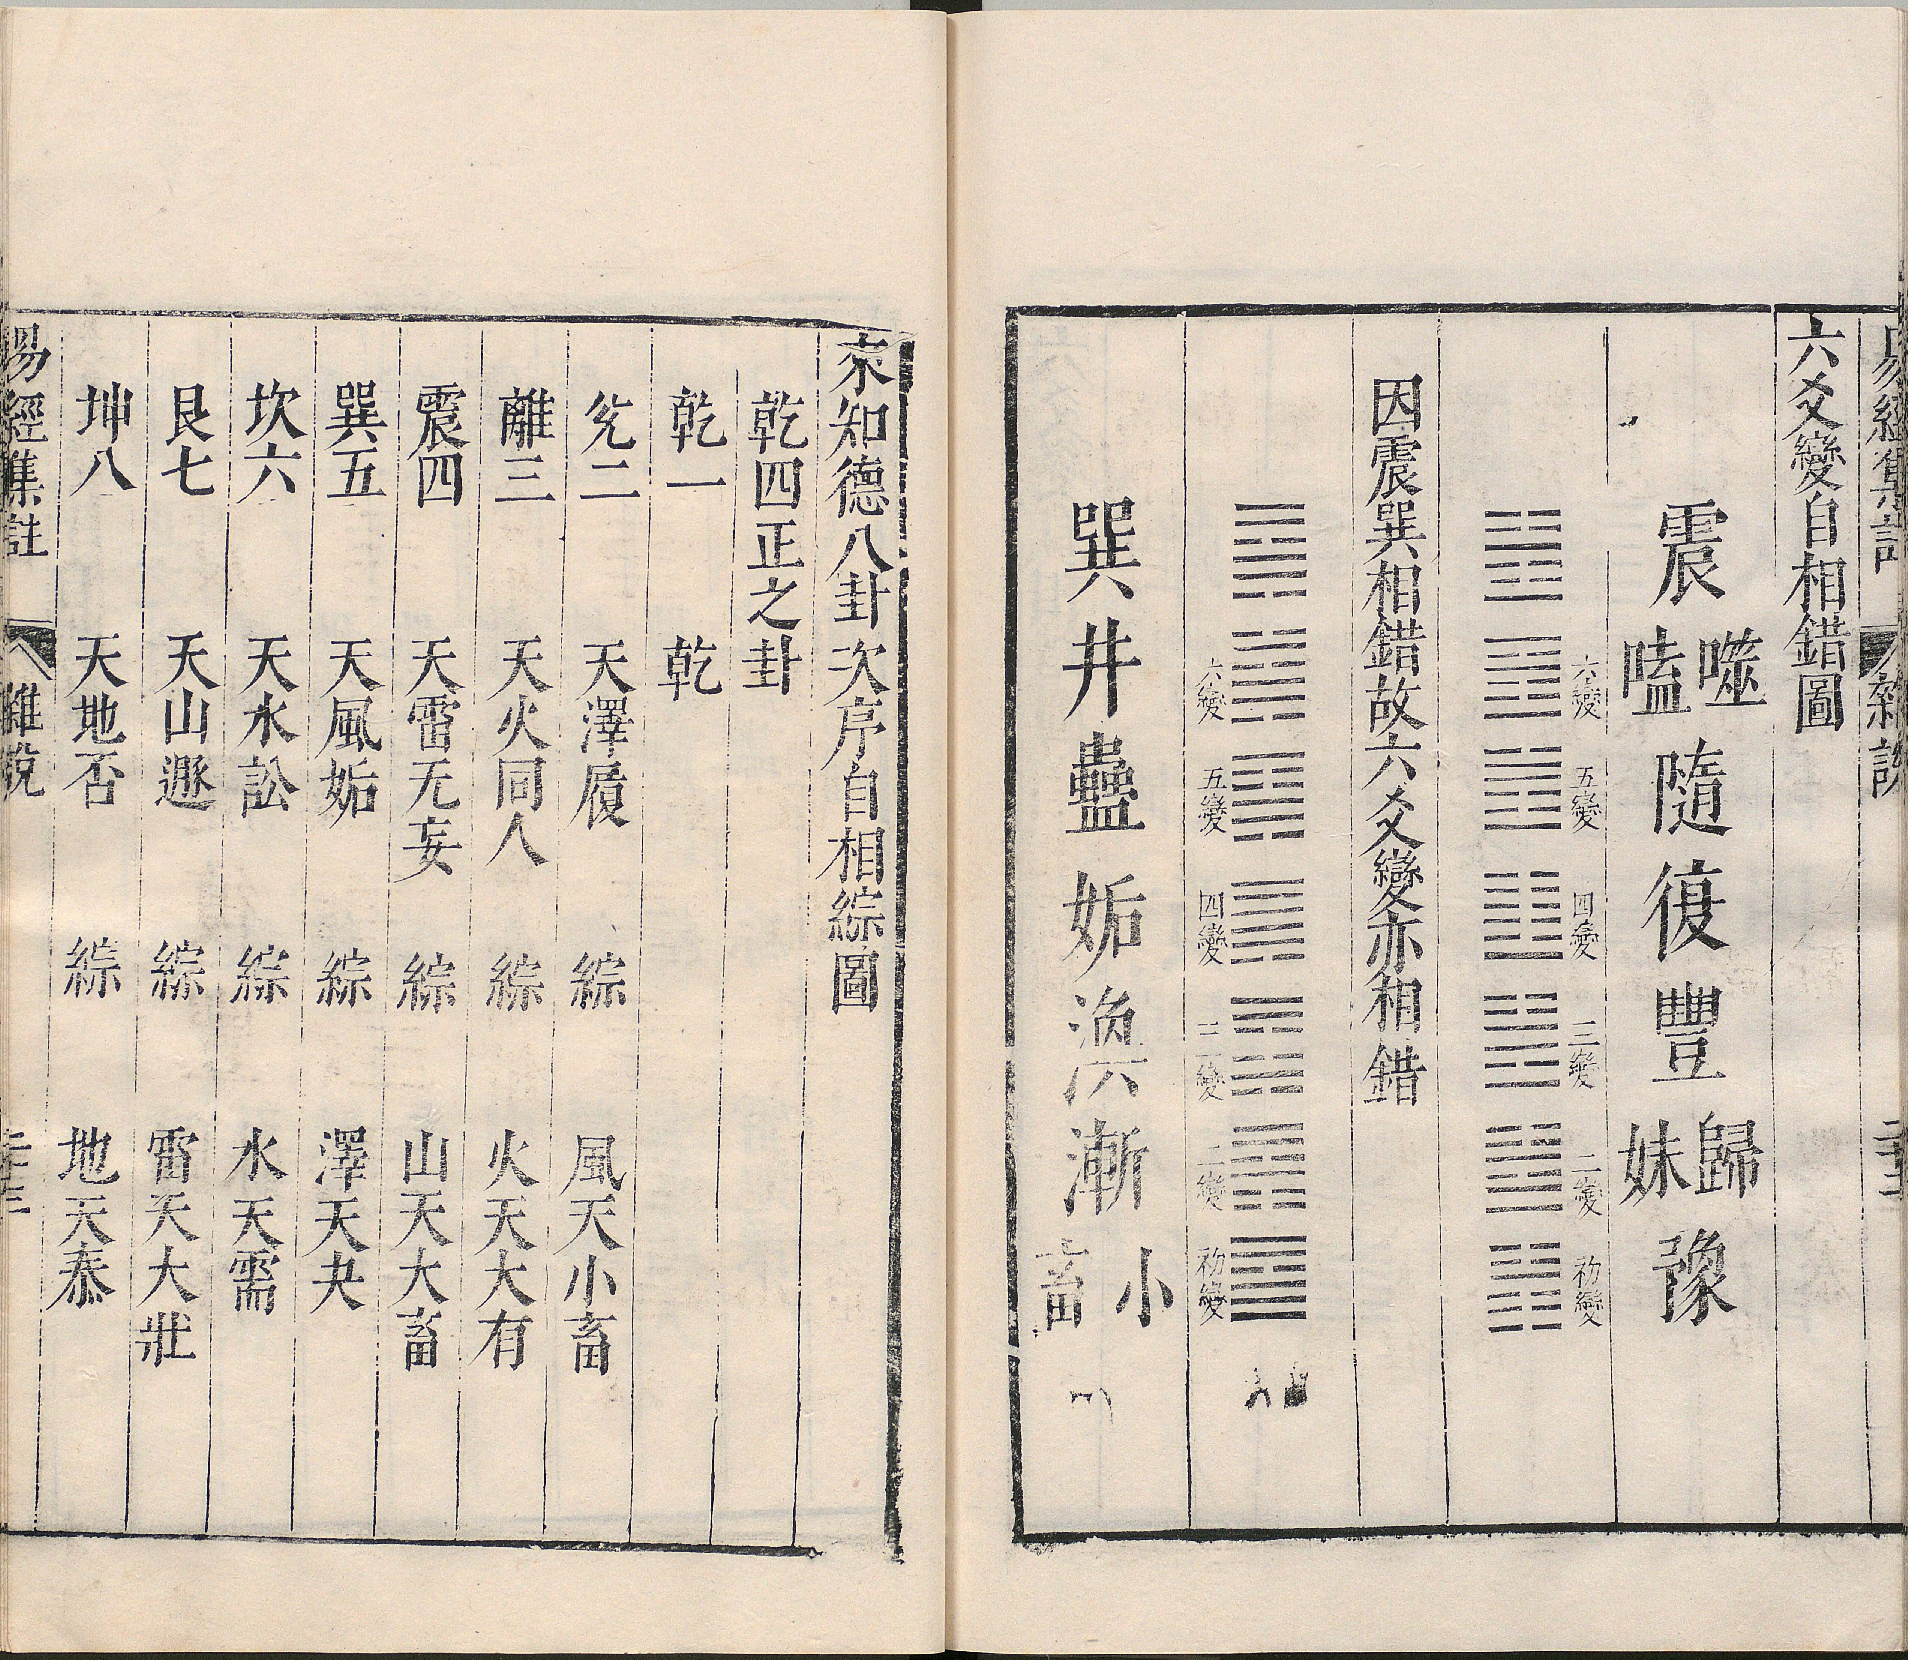 易經集註 雜說 二十二
六爻變自相錯圖
震 噬嗑 隨 復 豐 歸妹 豫
六變 五變 四變 三變 二變 初變
因震巽相錯故六爻變亦相錯
六變 五變 四變 三變 二變 初變
巽 井 蠱 姤 渙 漸 小畜
來知德八卦次序自相綜圖
乾四正之卦
乾一 乾
兊二 天澤履 綜 風天小畜
離三 天火同人 綜 火天大有
震四 天雷无妄 綜 山天大畜
巽五 天風姤 綜 澤天夬
坎六 天水訟 綜 水天需
艮七 天山遯 綜 雷天大壯
坤八 天地否 綜 地天泰
易經集註 雜說 二十三